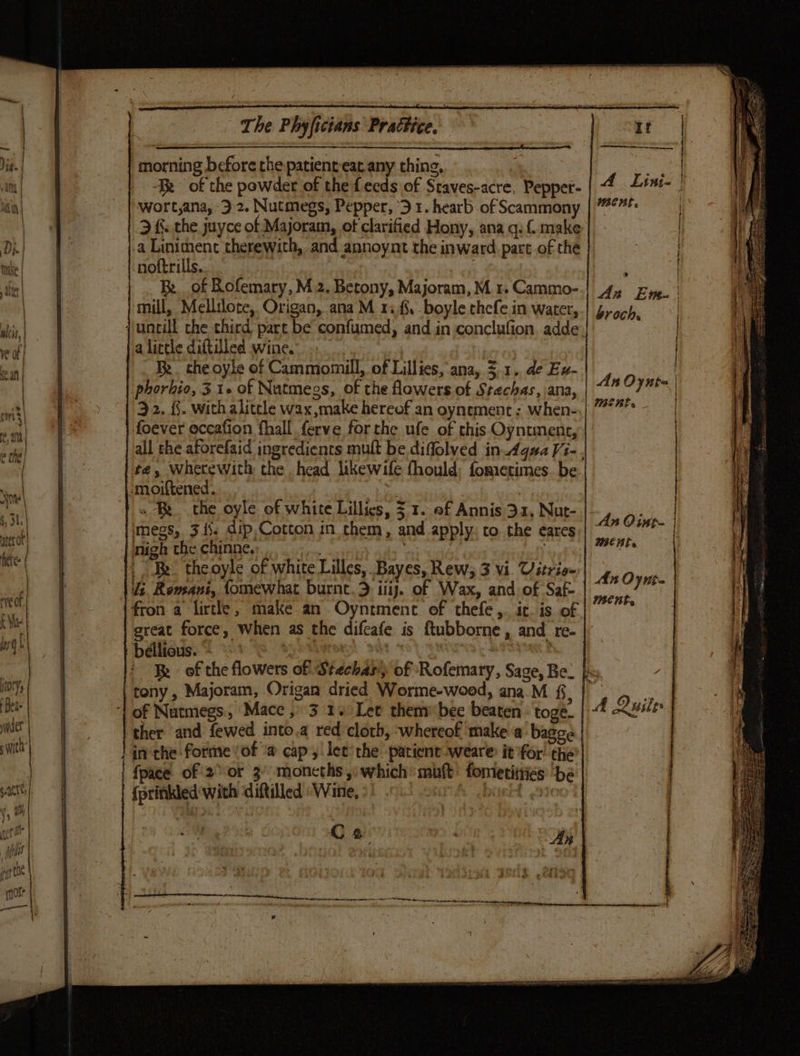 The Phyſicians Practice.
11
morning before the patient eat any thing.
℞ of the powder of the ſeeds of Staves-acre, Pepper-
wort, ana, ℈ 2. Nutmegs, Pepper, ℈ 1. hearb of Scammony
℈ ß. the juyce of Majoram, of clarified Hony, ana q. ſ. make
a Liniment therewith, and annoynt the inward part of the
noſtrills.
A Lini-
ment.
℞ of Roſemary, M 2. Betony, Majoram, M 1. Cammo-
mill, Mellilote, Origan, ana M 1. ß. boyle theſe in water,
untill the third part be conſumed, and in concluſion adde
a little diſtilled wine.
An Em-
broch.
℞ the oyle of Cammomill, of Lillies, ana, ℥ 1. de Eu-
phorbio, ʒ 1. of Nutmegs, of the flowers of Stechas, ana,
℈ 2. ß. with a little wax, make hereof an oyntment; when-
ſoever occaſion ſhall ſerve for the uſe of this Oyntment,
all the aforeſaid ingredients muſt be diſſolved in Aqua Vi-
tæ, wherewith the head likewiſe ſhould ſometimes be
moiſtened.
An Oynt-
ment.
℞ the oyle of white Lillies, ℥ 1. of Annis ℈ 1, Nut-
megs, ʒ ß. dip Cotton in them, and apply to the eares
nigh the chinne.
An Oint-
ment.
℞ the oyle of white Lilles, Bayes, Rew, ʒ vi. Vitrio-
li Romani, ſomewhat burnt ℈ iiij. of Wax, and of Saf-
fron a little, make an Oyntment of theſe, it is of
great force, when as the diſeaſe is ſtubborne, and re-
bellious.
An Oynt-
ment.
℞ of the flowers of Stechas, of Roſemary, Sage, Be-
tony, Majoram, Origan dried Worme-wood, ana M ß,
of Nutmegs, Mace, ʒ 1. Let them bee beaten toge-
ther and ſewed into a red cloth, whereof make a bagge
in the forme of a cap, let the patient weare it for the
ſpace of 2 or 3 moneths, which muſt ſometimes be
ſprinkled with diſtilled Wine,
A Quilt
C 2
An